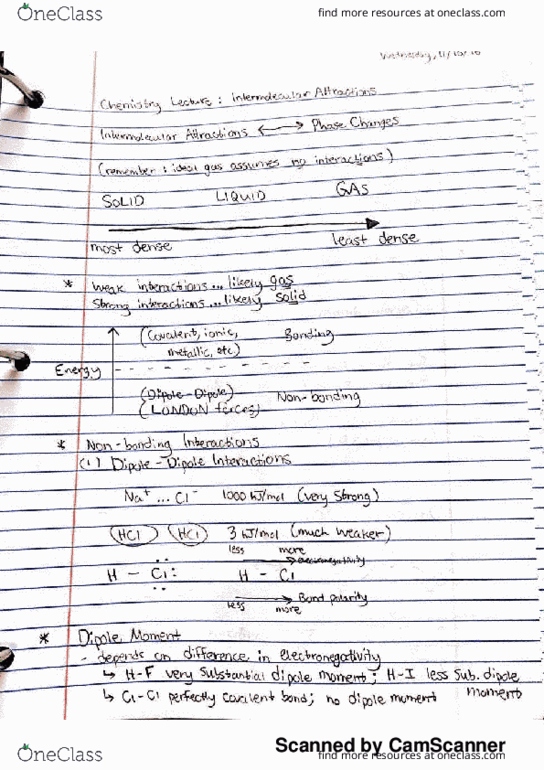 OneClass
find more resources at oneclass.com
Wednesday, 11/10/10
Chemistry Lecture: Intermolecular Attractions
Intermolecular Attractions ⟷ Phase Changes
(remember: ideal gas assumes no interactions)
SOLID LIQUID GAS
most dense least dense
* weak interactions... likely gas
strong interactions... likely solid
(covalent, ionic, Bonding
metallic, etc.)
Energy
(Dipole-Dipole) Non-bonding
(LONDON forces)
* Non-bonding Interactions
(1) Dipole-Dipole Interactions
Na⁺ ... Cl⁻ 1000 kJ/mol (very strong)
HCl HCl 3 kJ/mol (much weaker)
less more
electronegativity
H - Cl: H - Cl
less more Bond polarity
* Dipole Moment
- depends on difference in electronegativity
↳ H-F very substantial dipole moment; H-I less sub. dipole moment
↳ Cl-Cl perfectly covalent bond; no dipole moment
Scanned by CamScanner
OneClass
find more resources at oneclass.com